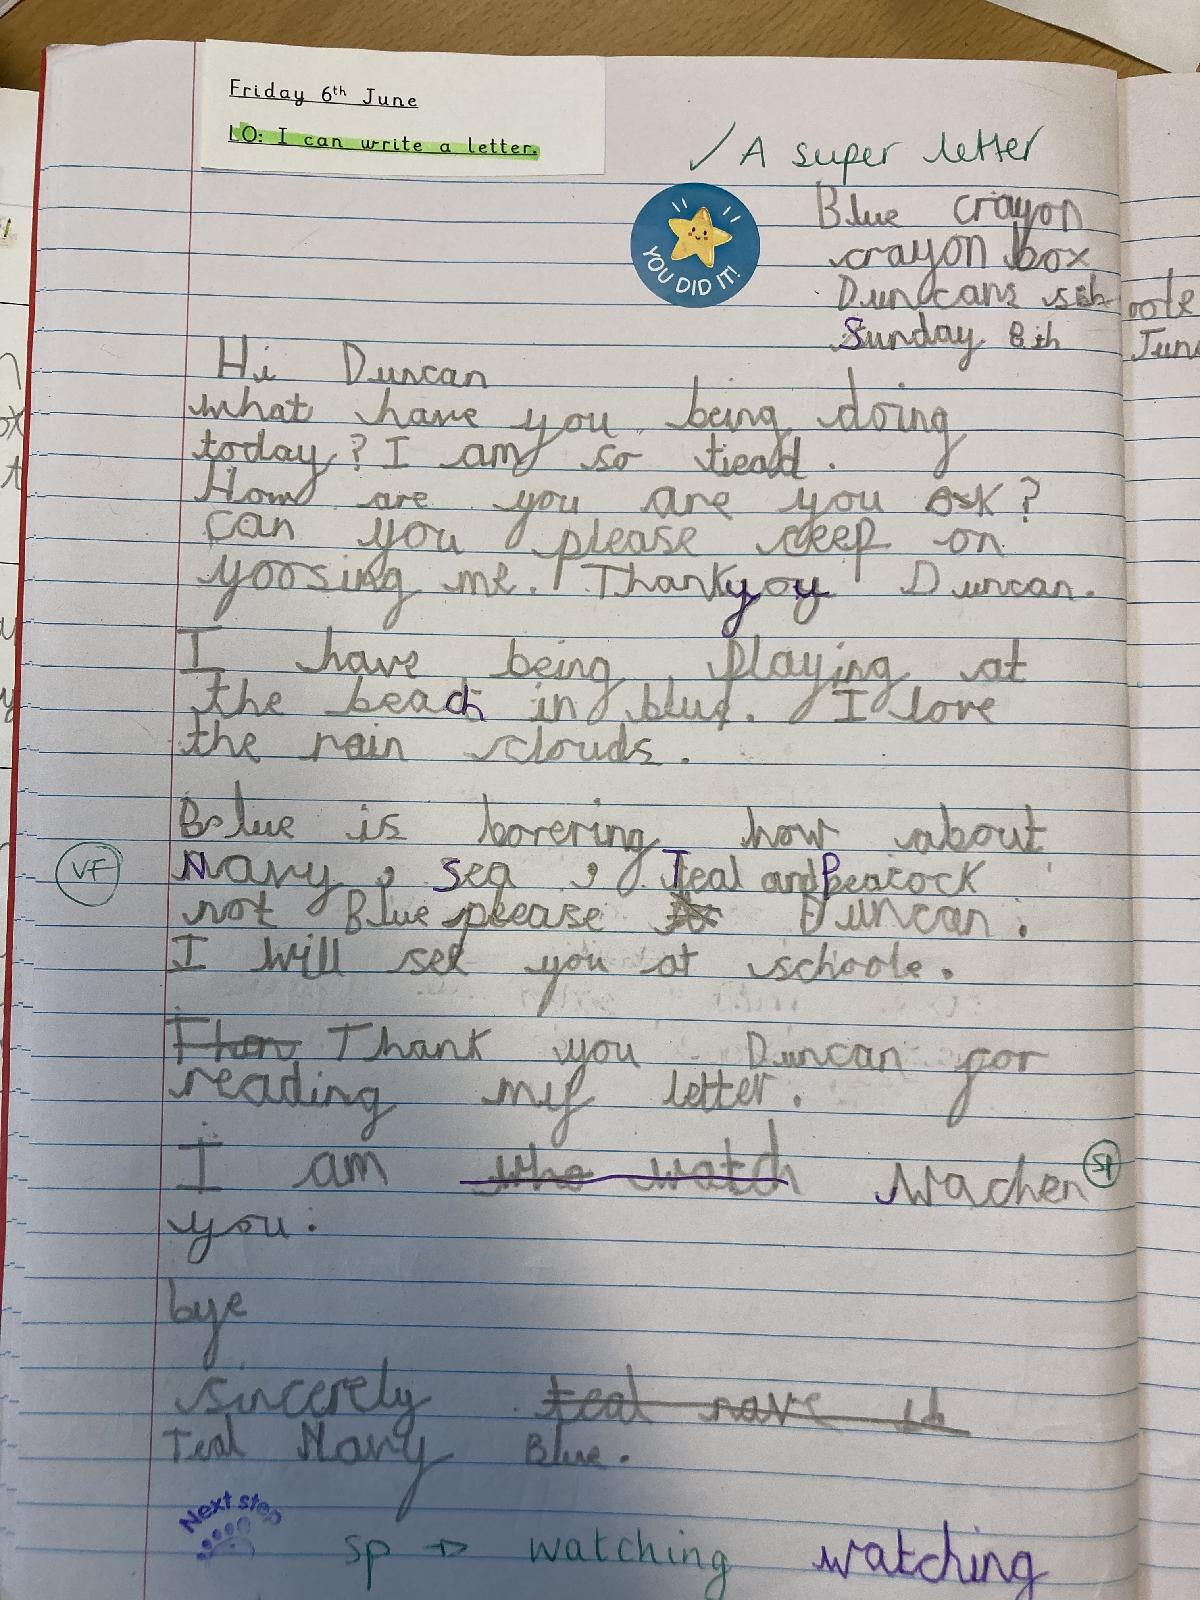 Friday 6th June
LO: I can write a letter.
✓ A super letter
YOU DID IT!
Blue crayon
crayon box
Duncans schoole
Sunday 8th June
Hi Duncan
what have you being doing
today? I am so tieard.
How are you are you ok?
can you please ceep on
yoosing me. Thankyou Duncan.
I have being playing at
the beach in blue. I love
the rain clouds.
Blue is borering how about
VF
Navy, sea, Teal and Peacock
not Blue please Duncan.
I will see you at schoole.
Then Thank you Duncan for
reading my letter.
I am who watch Wachen sp
you.
bye
sincerely teal nave
Teal Navy Blue.
Next step
sp → watching watching